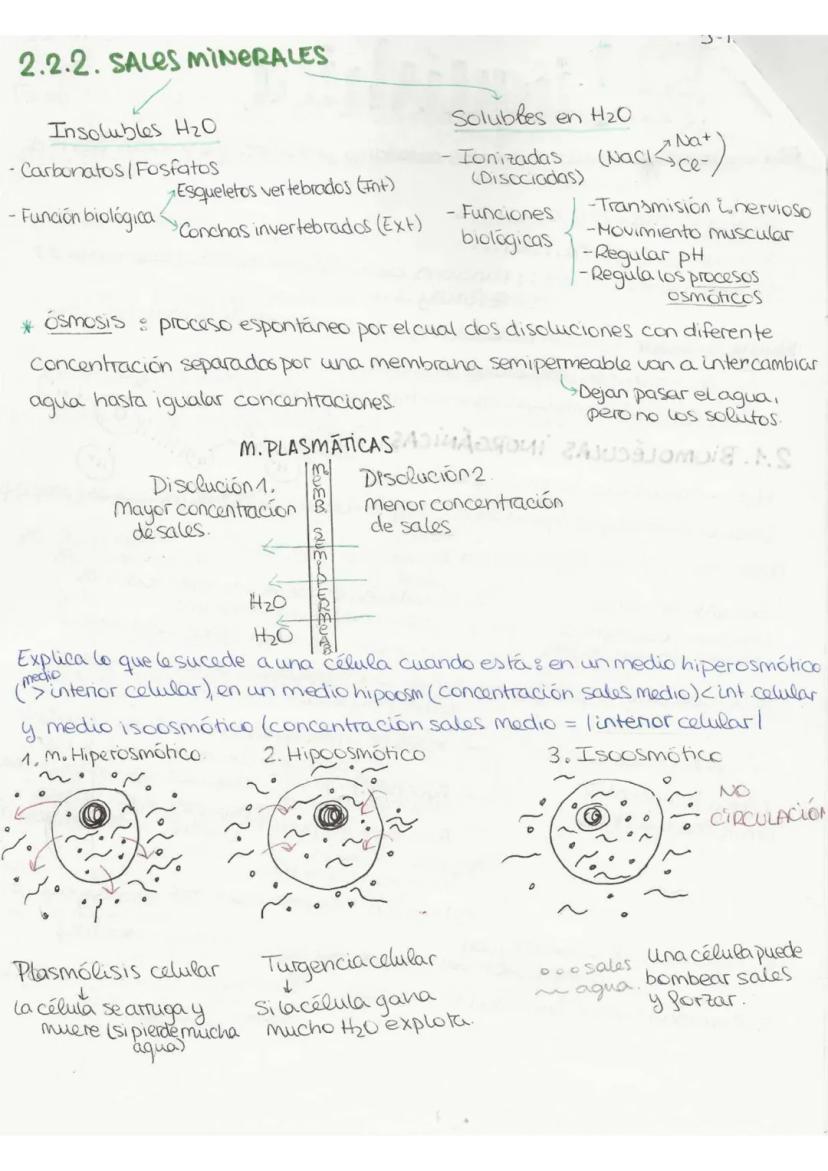 2.2.2. SALES MINERALES
Insolubles H2O
- Carbonatos/Fosfatos
- Función biológica
Esqueletos vertebrados (Int)
Conchas invertebrados (Ext)
Solubles en H2O
- Ionizadas (NaCl Na+ Cl-)
(Disociadas)
- Funciones biológicas
- Transmisión i. nervioso
- Movimiento muscular
- Regular pH
- Regula los procesos
osmóticos
* ósmosis : proceso espontáneo por el cual dos disoluciones con diferente
concentración separados por una membrana semipermeable van a intercambiar
agua hasta igualar concentraciones.
Dejan pasar el agua,
pero no los solutos.
M. PLASMÁTICAS
Disolución 1.
Mayor concentración
de sales.
MEMB. SEMIPERMEAB
Disolución 2.
Menor concentración
de sales
H2O
H2O
Explica lo que le sucede a una célula cuando está : en un medio hiperosmótico
(medio > interior celular), en un medio hipoosm (concentración sales medio) < int. celular
y medio isoosmótico (concentración sales medio = interior celular)
1. m. Hiperosmótico.
2. Hipoosmótico
3. Isoosmótico
NO
CIRCULACIÓN
Plasmólisis celular
La célula se arruga y
muere (si pierde mucha
agua)
Turgencia celular
Si la célula gana
mucho H2O explota.
sales
agua.
Una célula puede
bombear sales
y forzar.